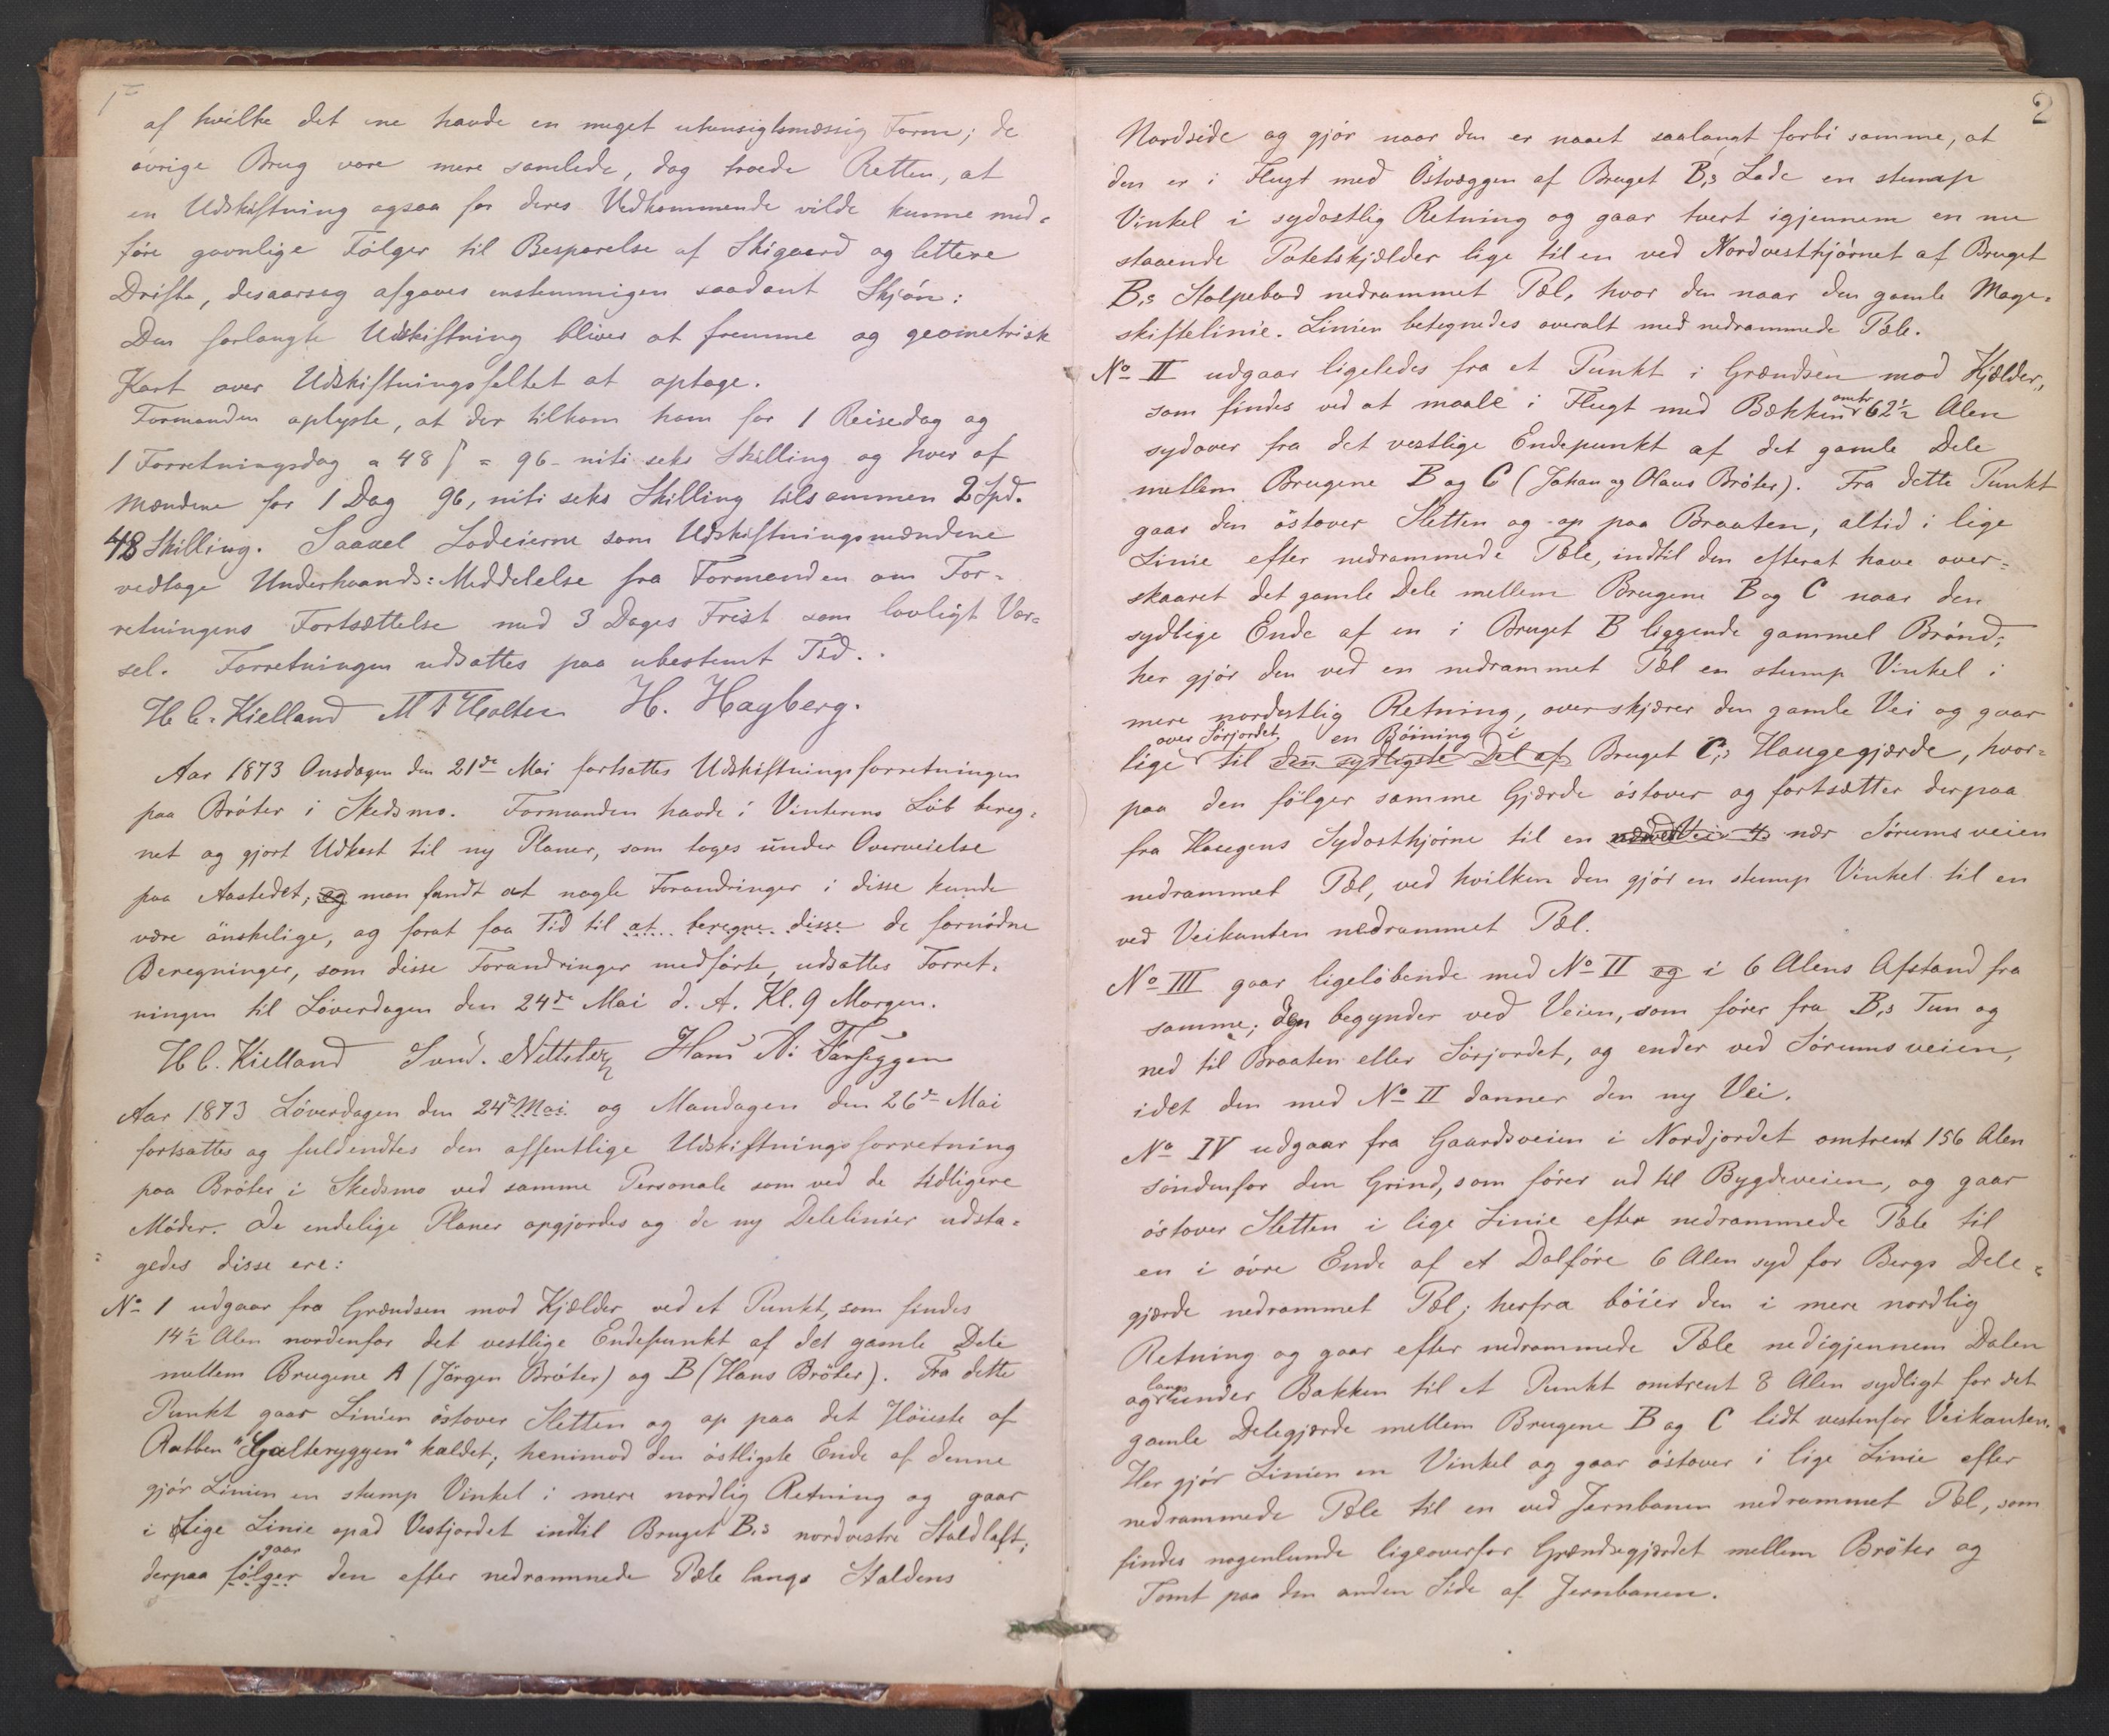 af hvilke det ene havde en meget uhensigtsmæssig Form; de
øvrige Brug vare mere samlede, dog troede Retten, at
en Udskiftning ogsaa for deres Vedkommende vilde kunne med=
føre gavnlige Følger til Besparelse af Skigaard og lettere
Drift, desaarsag afgaves enstemmigen saadant Skjøn:
Den forlangte Udskiftning bliver at fremme og geometrisk
Kart over Udskiftningsfeltet at optage.
Formanden oplyste, at der tilkom ham for 1 Reisedag og
1 Forretningsdag a 48 ſ = 96 - niti seks Skilling og hver af
Mændene for 1 Dag 96, niti seks Skilling tilsammen 2 Spd.
48 Skilling. Saavel Lodeierne som Udskiftningsmændene
vedtage Underhaands: Meddelelse fra Formanden om For=
retningens Fortsættelse med 3 Dages Frist som lovligt Var=
sel. Forretningen udsattes paa ubestemt Tid.
H C. Kielland M T Holter H. Hagberg.
Aar 1873 Onsdagen den 21de Mai fortsattes Udskiftningsforretningen
paa Brøter i Skedsmo. Formanden havde i Vinterens Løb bereg=
net og gjort Udkast til ny Planer, som toges under Overveielse
paa Aastedet; og man fandt at nogle Forandringer i disse kunde
være ønskelige, og forat faa Tid til at beregne disse de fornødne
Beregninger, som disse Forandringer medførte, udsattes Forret=
ningen til Løverdagen den 24de Mai d. A. Kl. 9 Morgen.
H C. Kielland Hans
Aar 1873 Løverdagen den 24de Mai og Mandagen den 26de Mai
fortsattes og fuldendtes den offentlige Udskiftningsforretning
paa Brøter i Skedsmo ved samme Personale som ved de tidligere
Møder. De endelige Planer opgjordes og de ny Delelinier udsta=
gedes disse ere:
No 1 udgaar fra Grændsen mod Kjælder ved et Punkt, som findes
14½ Alen nordenfor det vestlige Endepunkt af det gamle Dele
mellem Brugene A (Jørgen Brøter) og B (Hans Brøter). Fra dette
Punkt gaar Linien østover Sletten og op paa det Høieste af
"Galteryggen" kaldet; henimod den østligste Ende af denne
gjør Linien en stump Vinkel i mere nordlig Retning og gaar
i lige Linie opad Vestjordet indtil Bruget B,s nordvestre Staldlaft;
derpaa følger gaar den efter nedrammede Pæle langs Staldens
2
Nordside og gjør naar den er naaet saalangt forbi samme, at
den er i Flugt med Østvæggen af Bruget B,s Lade en stump
Vinkel i sydostlig Retning og gaar tvert igjennem en nu
staaende Potetskjælder lige til en ved Nordvesthjørnet af Bruget
B,s Stolpebod nedrammet Pæl, hvor den naar den gamle Mage=
skiftelinie. Linien betegnedes overalt med nedrammede Pæle.
No II udgaar ligeledes fra et Punkt i Grændsen mod Kjælder,
som findes ved at maale i Flugt med Bækken omtr 62½ Alen
sydover fra det vestlige Endepunkt af det gamle Dele
mellem Brugene B og C (Johan og Olaus Brøter). Fra dette Punkt
gaar den østover Sletten og op paa Braaten, altid i lige
Linie efter nedrammede Pæle, indtil den efterat have over=
skaaret det gamle Dele mellem Brugene B og C naar den
sydlige Ende af en i Bruget B liggende gammel Brønd;
her gjør den ved en nedrammet Pæl en stump Vinkel i
mere nordostlig Retning, overskjærer den gamle Vei og gaar
over Sørjordet, en Bøining i
lige til den sydligste Del af Bruget C,s Haugegjærde, hvor=
paa den følger samme Gjærde østover og fortsætter derpaa
fra Haugens Sydosthjørne til en nær Sørumsveien
nedrammet Pæl, ved hvilken den gjør en stump Vinkel til en
ved Veikanten nedrammet Pæl.
No III gaar ligeløbende med No II og i 6 Alens Afstand fra
samme; den begynder ved Veien, som fører fra B,s Tun og
ned til Braaten eller Sørjordet, og ender ved Sørumsveien,
idet den med No II danner den ny Vei.
No IV udgaar fra Gaardsveien i Nordjordet omtrent 156 Alen
søndenfor den Grind, som fører ud til Bygdeveien, og gaar
østover Sletten i lige Linie efter nedrammede Pæle til
en i øvre Ende af et Dalføre 6 Alen syd for Bergs Dele=
gjærde nedrammet Pæl; herfra bøier den i mere nordlig
Retning og gaar efter nedrammede Pæle nedigjennem Dalen
og langs under Bakken til et Punkt omtrent 8 Alen sydligt for det
gamle Delegjærde mellem Brugene B og C lidt vestenfor Veikanten.
Her gjør Linien en Vinkel og gaar østover i lige Linie efter
nedrammede Pæle til en ved Jernbanen nedrammet Pæl, som
findes nogenlunde ligeoverfor Grændsegjærdet mellem Brøter og
Tomt paa den anden Side af Jernbanen.